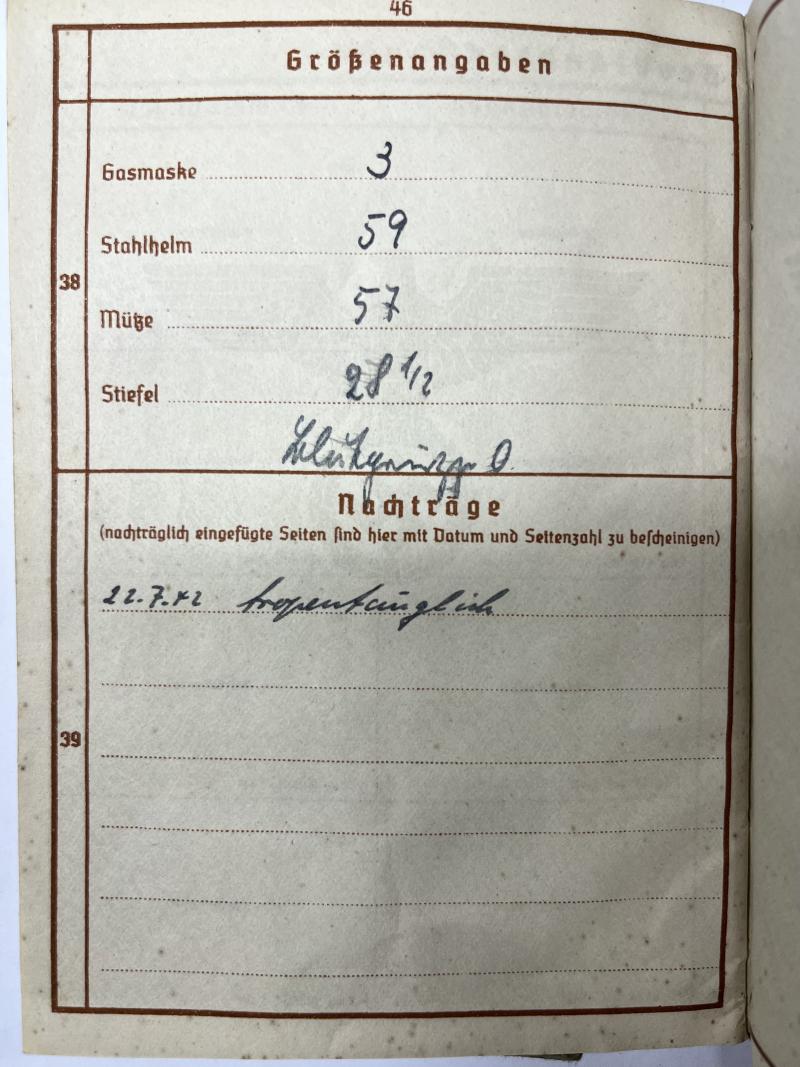 46
Größenangaben
Gasmaske 3
Stahlhelm 59
38
Mütze 57
Stiefel 28 1/2
Blutgruppe O.
Nachträge
(nachträglich eingefügte Seiten sind hier mit Datum und Seitenzahl zu bescheinigen)
22.7.42 tropentauglich
39